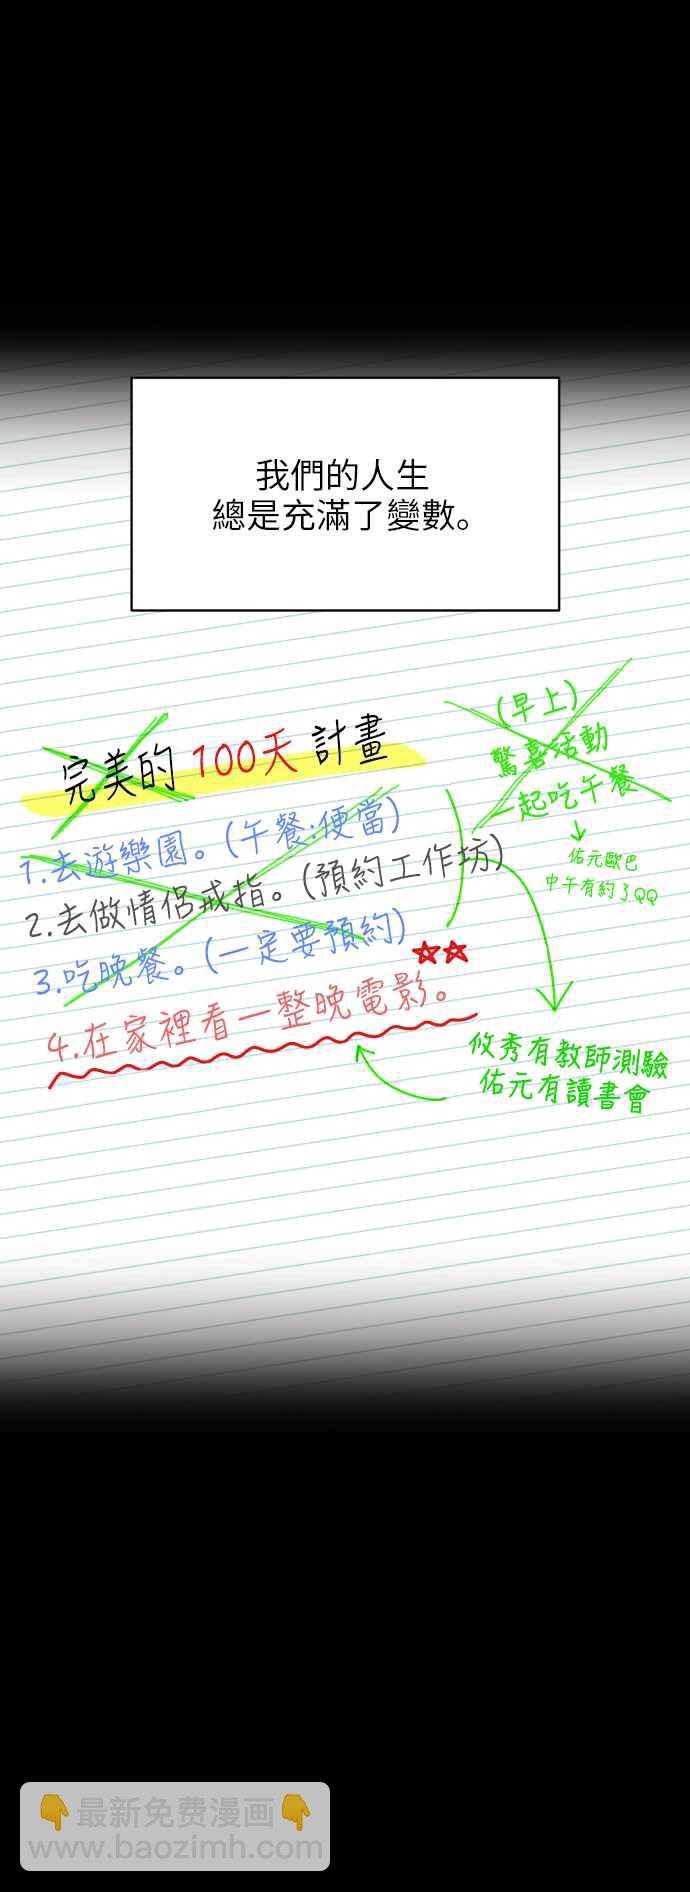 我們的人生
總是充滿了變數。
完美的 100天 計畫
1.去遊樂園。(午餐:便當)
2.去做情侶戒指。(預約工作坊)
3.吃晚餐。(一定要預約)
4.在家裡看一整晚電影。
(早上)
驚喜活動
一起吃午餐
佑元歐巴
中午有約了QQ
攸秀有教師測驗
佑元有讀書會
最新免費漫画
www.baozimh.com